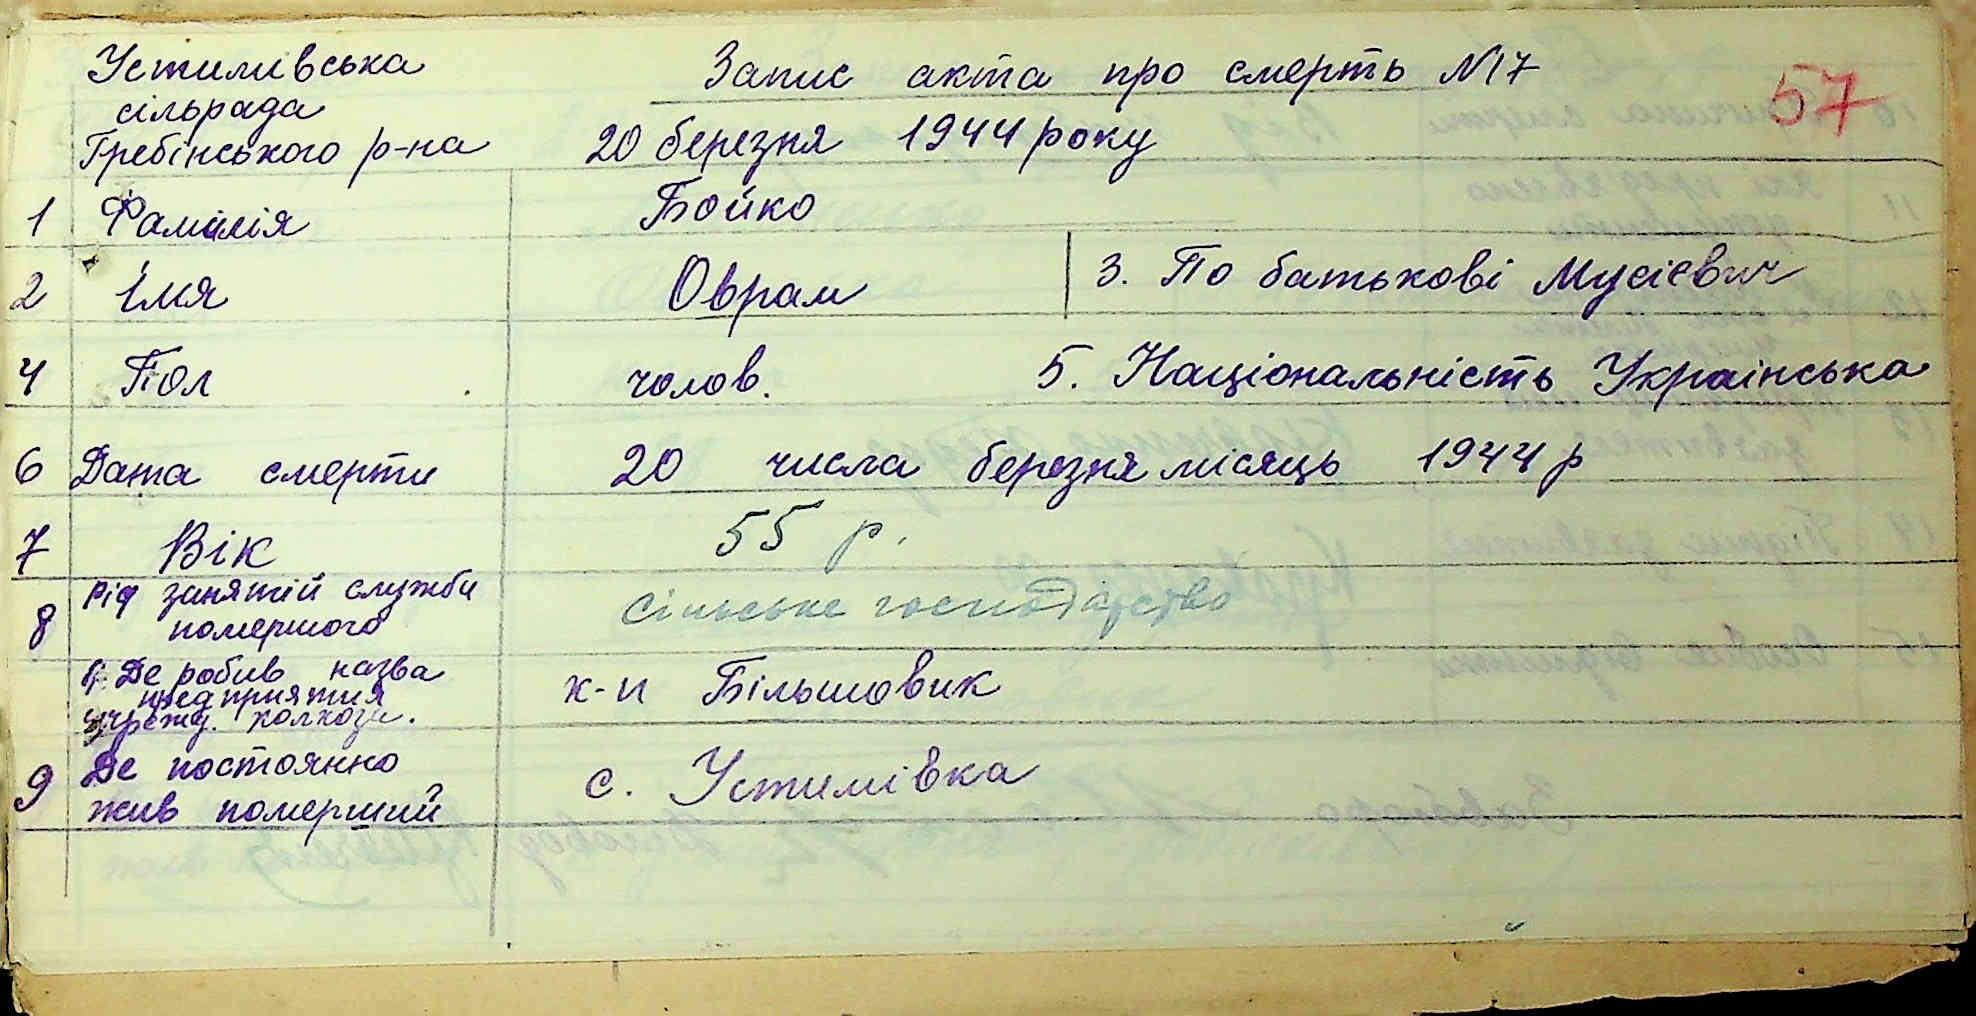 Устимівська
сільрада
Гребінського р-на
Запис акта про смерть №17
57
20 березня 1944 року
1 Фамилія Бойко
2 Імя Оврам 3. По батькові Мусієвич
4 Пол чолов. 5. Національність Українська
6 Дата смерти 20 числа березня місяць 1944 р
7 Вік 55 р.
8 Рід занятій служби
помершого
сільське господарство
Де робив назва
предприятия
учрежд. колхоза.
к-п Більшовик
9 Де постоянно
жив померший
с. Устимівка